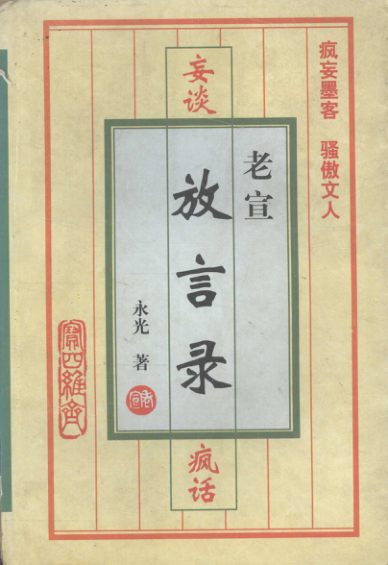 疯妄墨客 骚傲文人
老宣
妄谈
放言录
疯话
永光 著
老宣